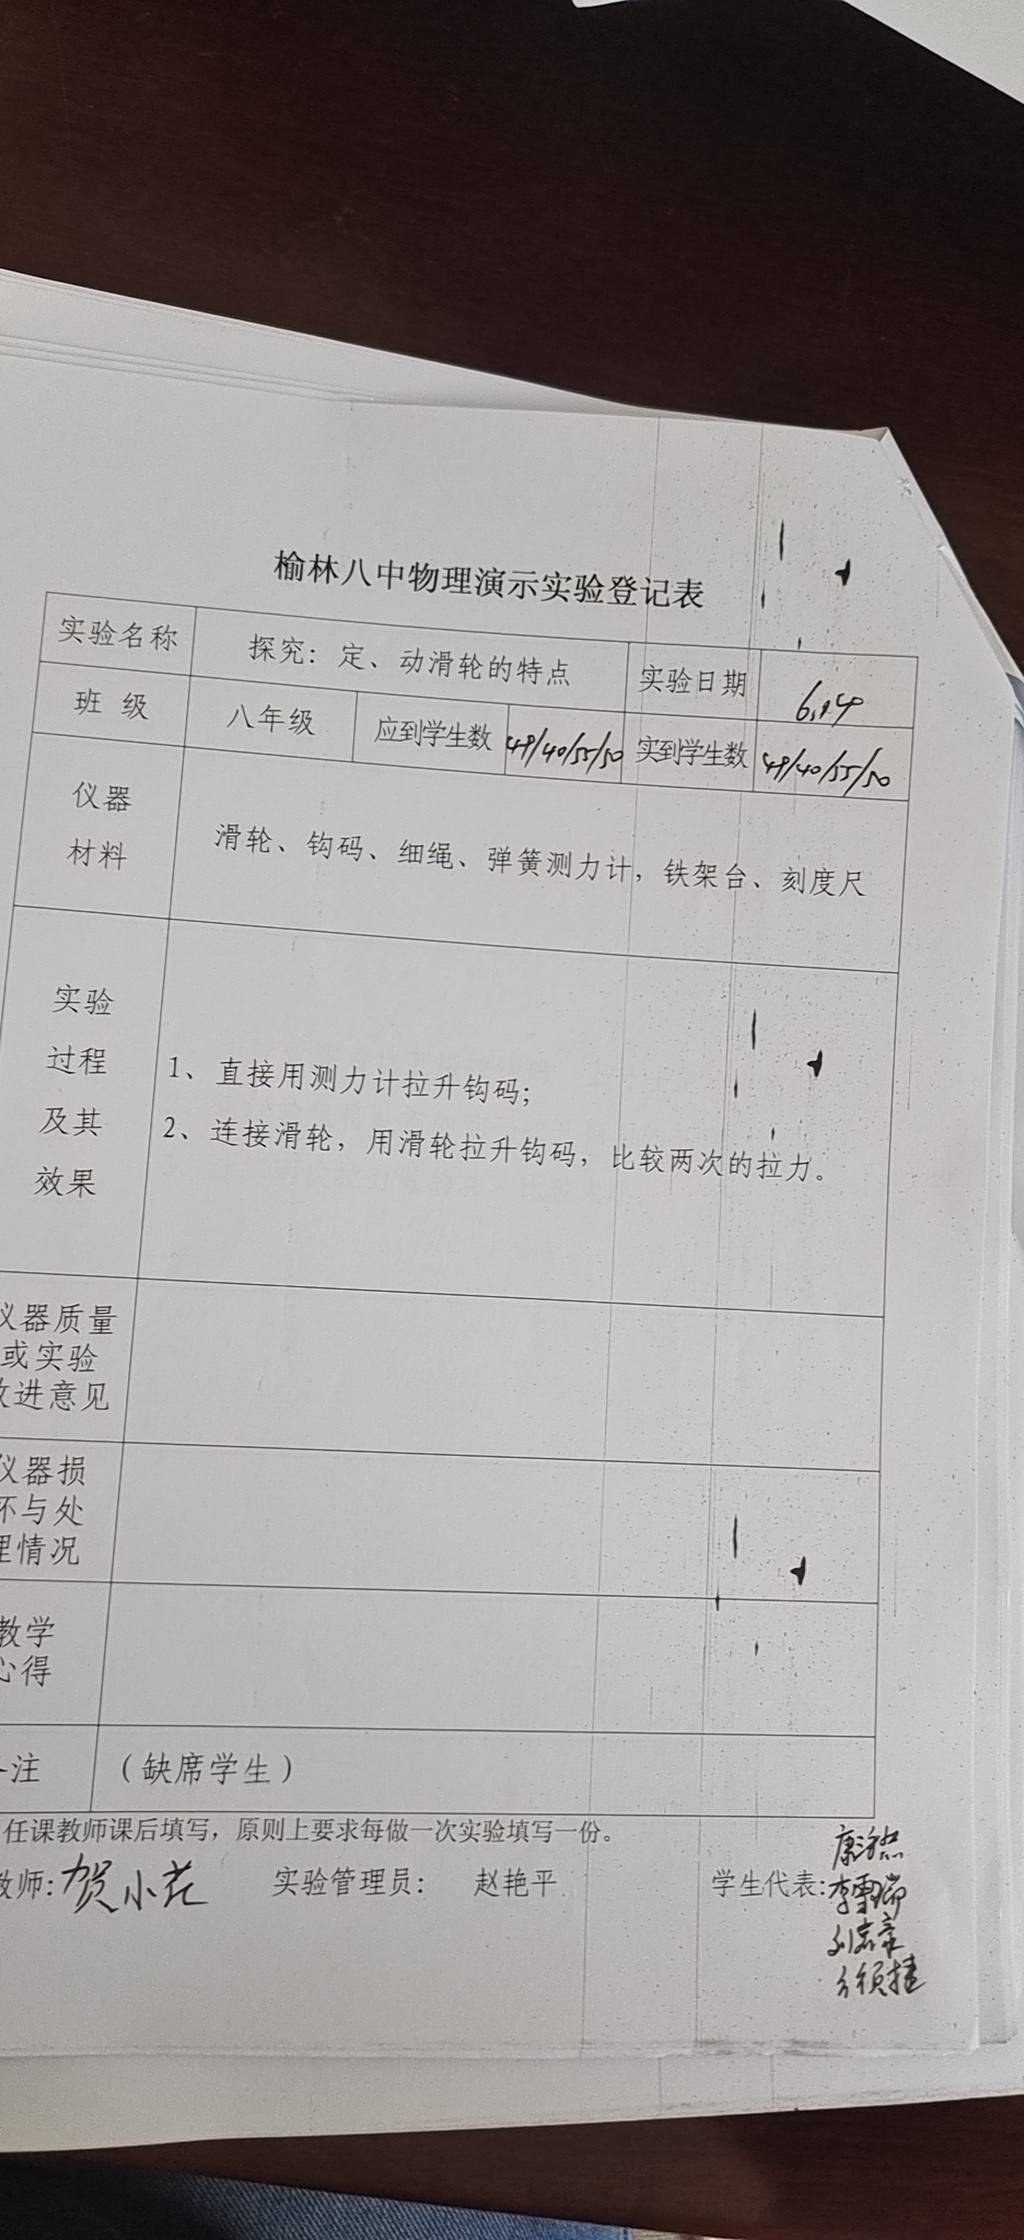 榆林八中物理演示实验登记表
实验名称 探究：定、动滑轮的特点 实验日期 6.14
班 级 八年级 应到学生数 49/40/55/50 实到学生数 49/40/55/50
仪器
材料
滑轮、钩码、细绳、弹簧测力计，铁架台、刻度尺
实验
过程
及其
效果
1、直接用测力计拉升钩码；
2、连接滑轮，用滑轮拉升钩码，比较两次的拉力。
仪器质量
或实验
改进意见
仪器损
坏与处
理情况
教学
心得
注 （缺席学生）
任课教师课后填写，原则上要求每做一次实验填写一份。
教师: 贺小花 实验管理员： 赵艳平 学生代表:
李雪瑞